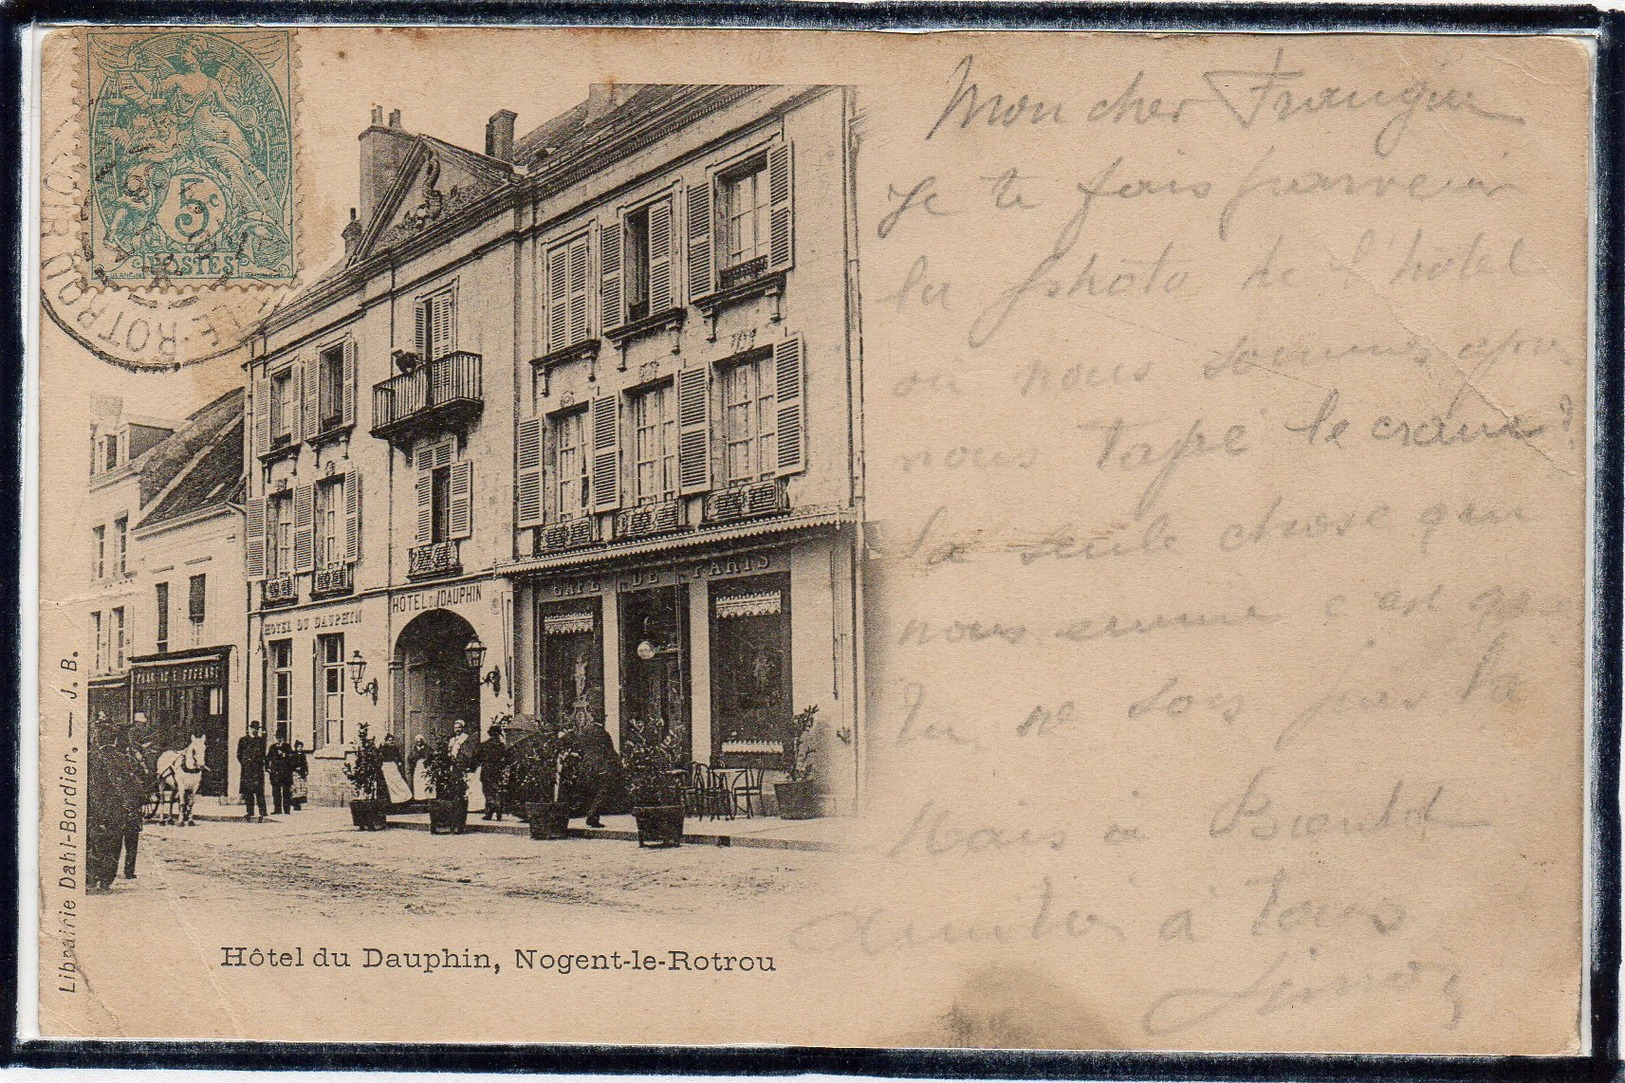 5c
POSTES
HOTEL DU DAUPHIN
HOTEL DU DAUPHIN
CAFE DE PARIS
Librairie Dahl-Bordier. — J. B.
Hôtel du Dauphin, Nogent-le-Rotrou
Mon cher
Je te fais parvenir
la photo de l'hotel
où nous sommes
nous tapé le
La seule chose qui
nous ennuie c'est que
tu ne sois pas là
Mais à Bientôt
Amitiés à tous